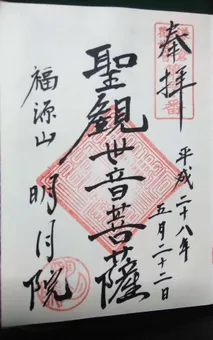 奉拝
平成二十八年
五月二十二日
聖観世音菩薩
福源山
明月院